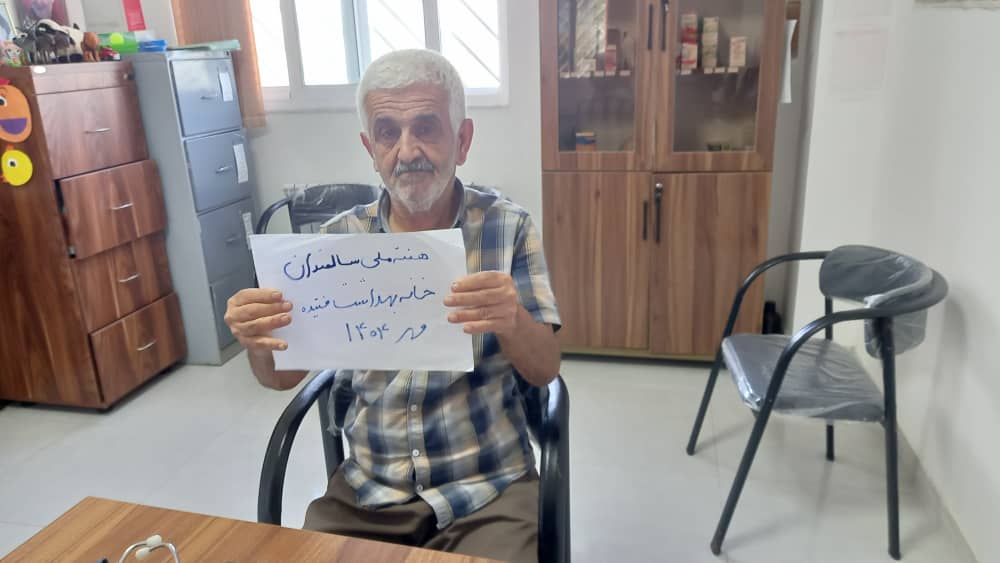 هفته ملی سالمندان
خانه بهداشت فتیده
مهر ۱۴۰۴